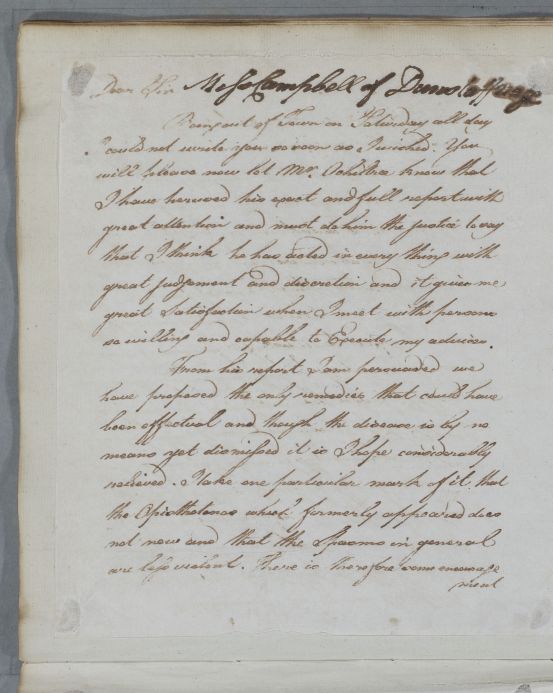 Dear Sir Miss Campbell of Dunstaffnage
Being out of Town on Saturday all day
I could not write you so soon as I wished. You
will please now let Mr. know that
I have perused his exact and full report with
great attention and must do him the justice to say
that I think he has acted in every thing with
great judgement and discretion and it gives me
great Satisfaction when I meet with persons
so willing and capable to Execute my advices.
From his report I am persuaded we
have proposed the only remedies that could have
been effectual and though the disease is by no
means yet dismissed it is I hope considerably
relieved. I take one particular mark of it that
the Opisthotonos which formerly appeared does
not now and that the Spasms in general
are less violent. There is therefore some encourage
ment